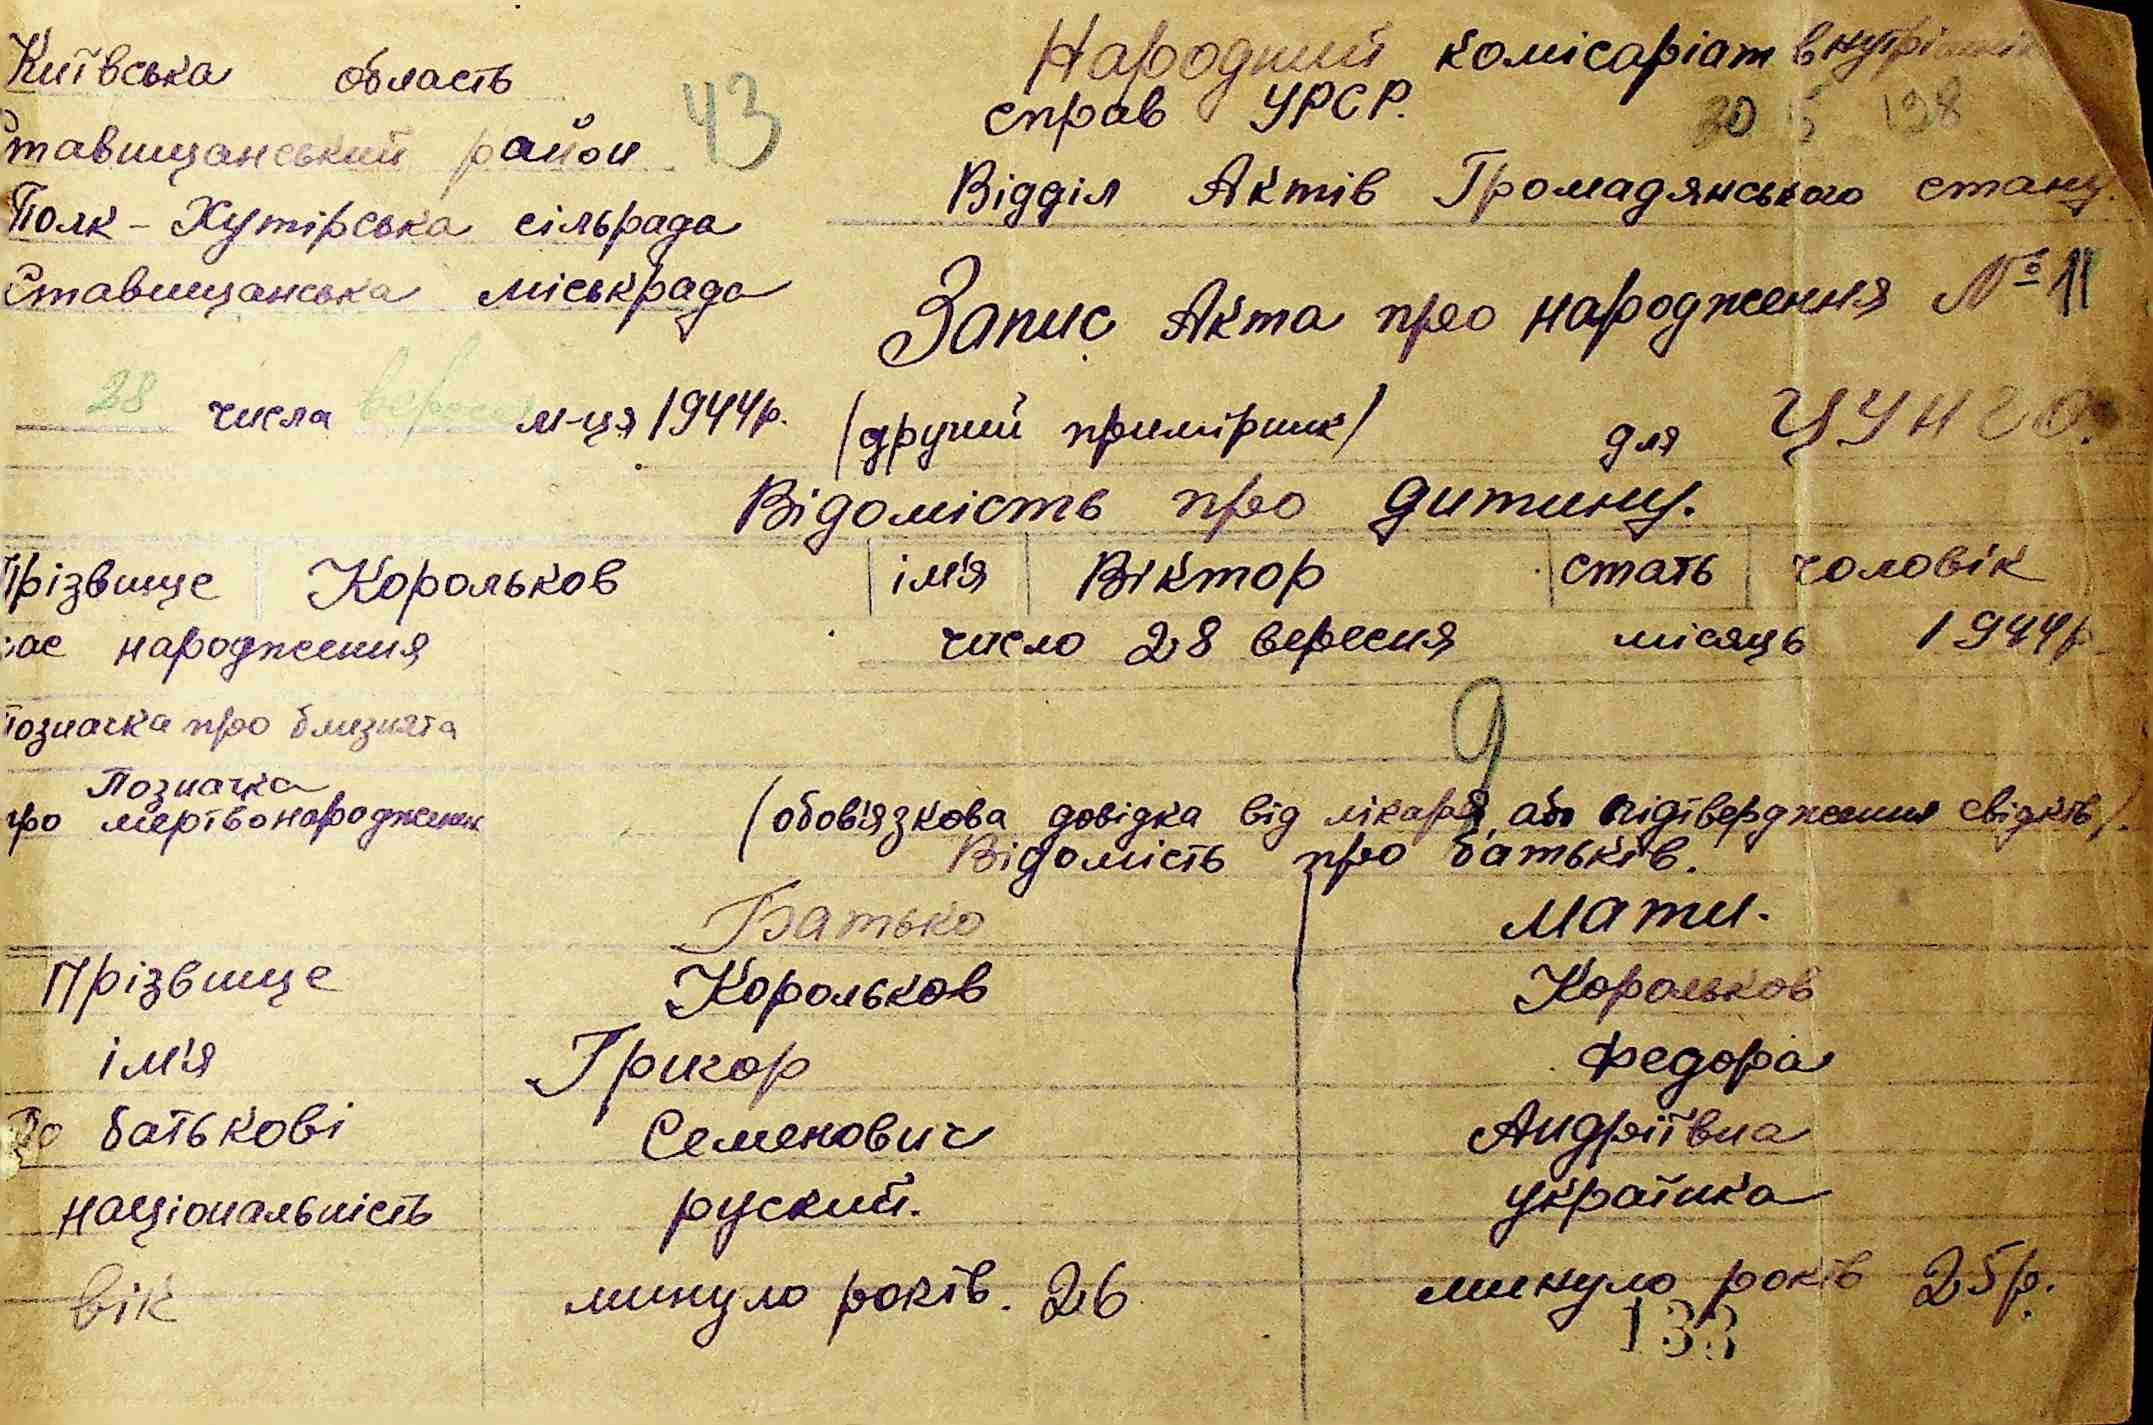 Київська область
Народний комісаріат внутрішніх
справ УРСР.
43
20 5 198
Ставищанський район
Відділ Актів Громадянського стану.
Полк-Хутірська сільрада
Ставищанська міськрада
Запис Акта про народження № 11
28 числа вересня м-ця 1944р.
(другий примірник) для ЦУНГО.
Відомість про дитину.
Прізвище Корольков ім'я Віктор стать чоловік
час народження число 28 вересня місяць 1944р.
Позначка про близнята
9
Позначка
про мертвонароджених (обов'язкова довідка від лікаря, або підтвердження свідків).
Відомість про батьків.
Батько Мати.
Прізвище Корольков Корольков
ім'я Григор Федора
по батькові Семенович Андріївна
національність руский. українка
вік минуло років. 26 минуло років 25р.
133